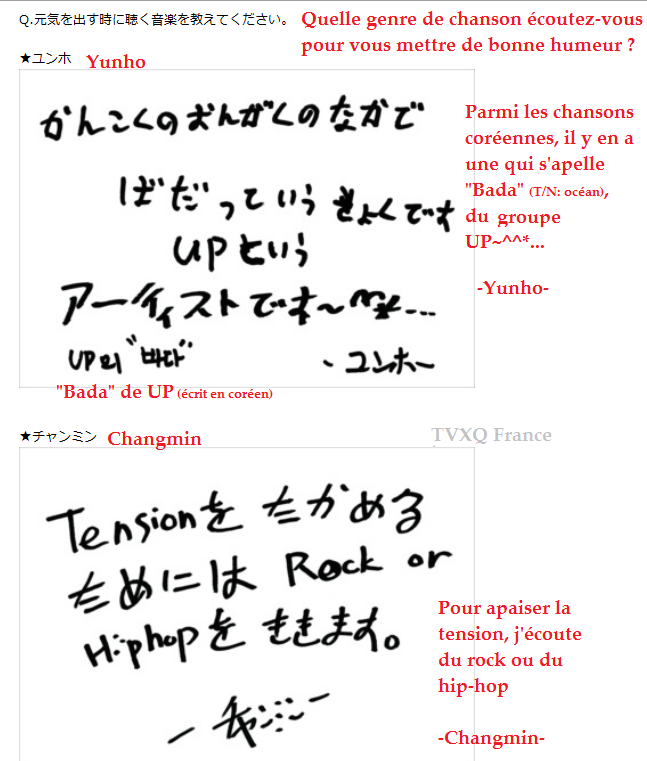 Q.元気を出す時に聴く音楽を教えてください。
Quelle genre de chanson écoutez-vous
pour vous mettre de bonne humeur ?
★ユンホ
Yunho
かんこくのおんがくのなかで
ばだっていうきょくです
UPという
アーティストです〜^^*...
UP의 "바다"
- ユンホー
Parmi les chansons
coréennes, il y en a
une qui s'apelle
"Bada" (T/N: océan),
du groupe
UP~^^*...
-Yunho-
"Bada" de UP (écrit en coréen)
★チャンミン
Changmin
TVXQ France
Tensionをたかめる
ためにはRock or
Hiphopをききます。
- チャンミン -
Pour apaiser la
tension, j'écoute
du rock ou du
hip-hop
-Changmin-